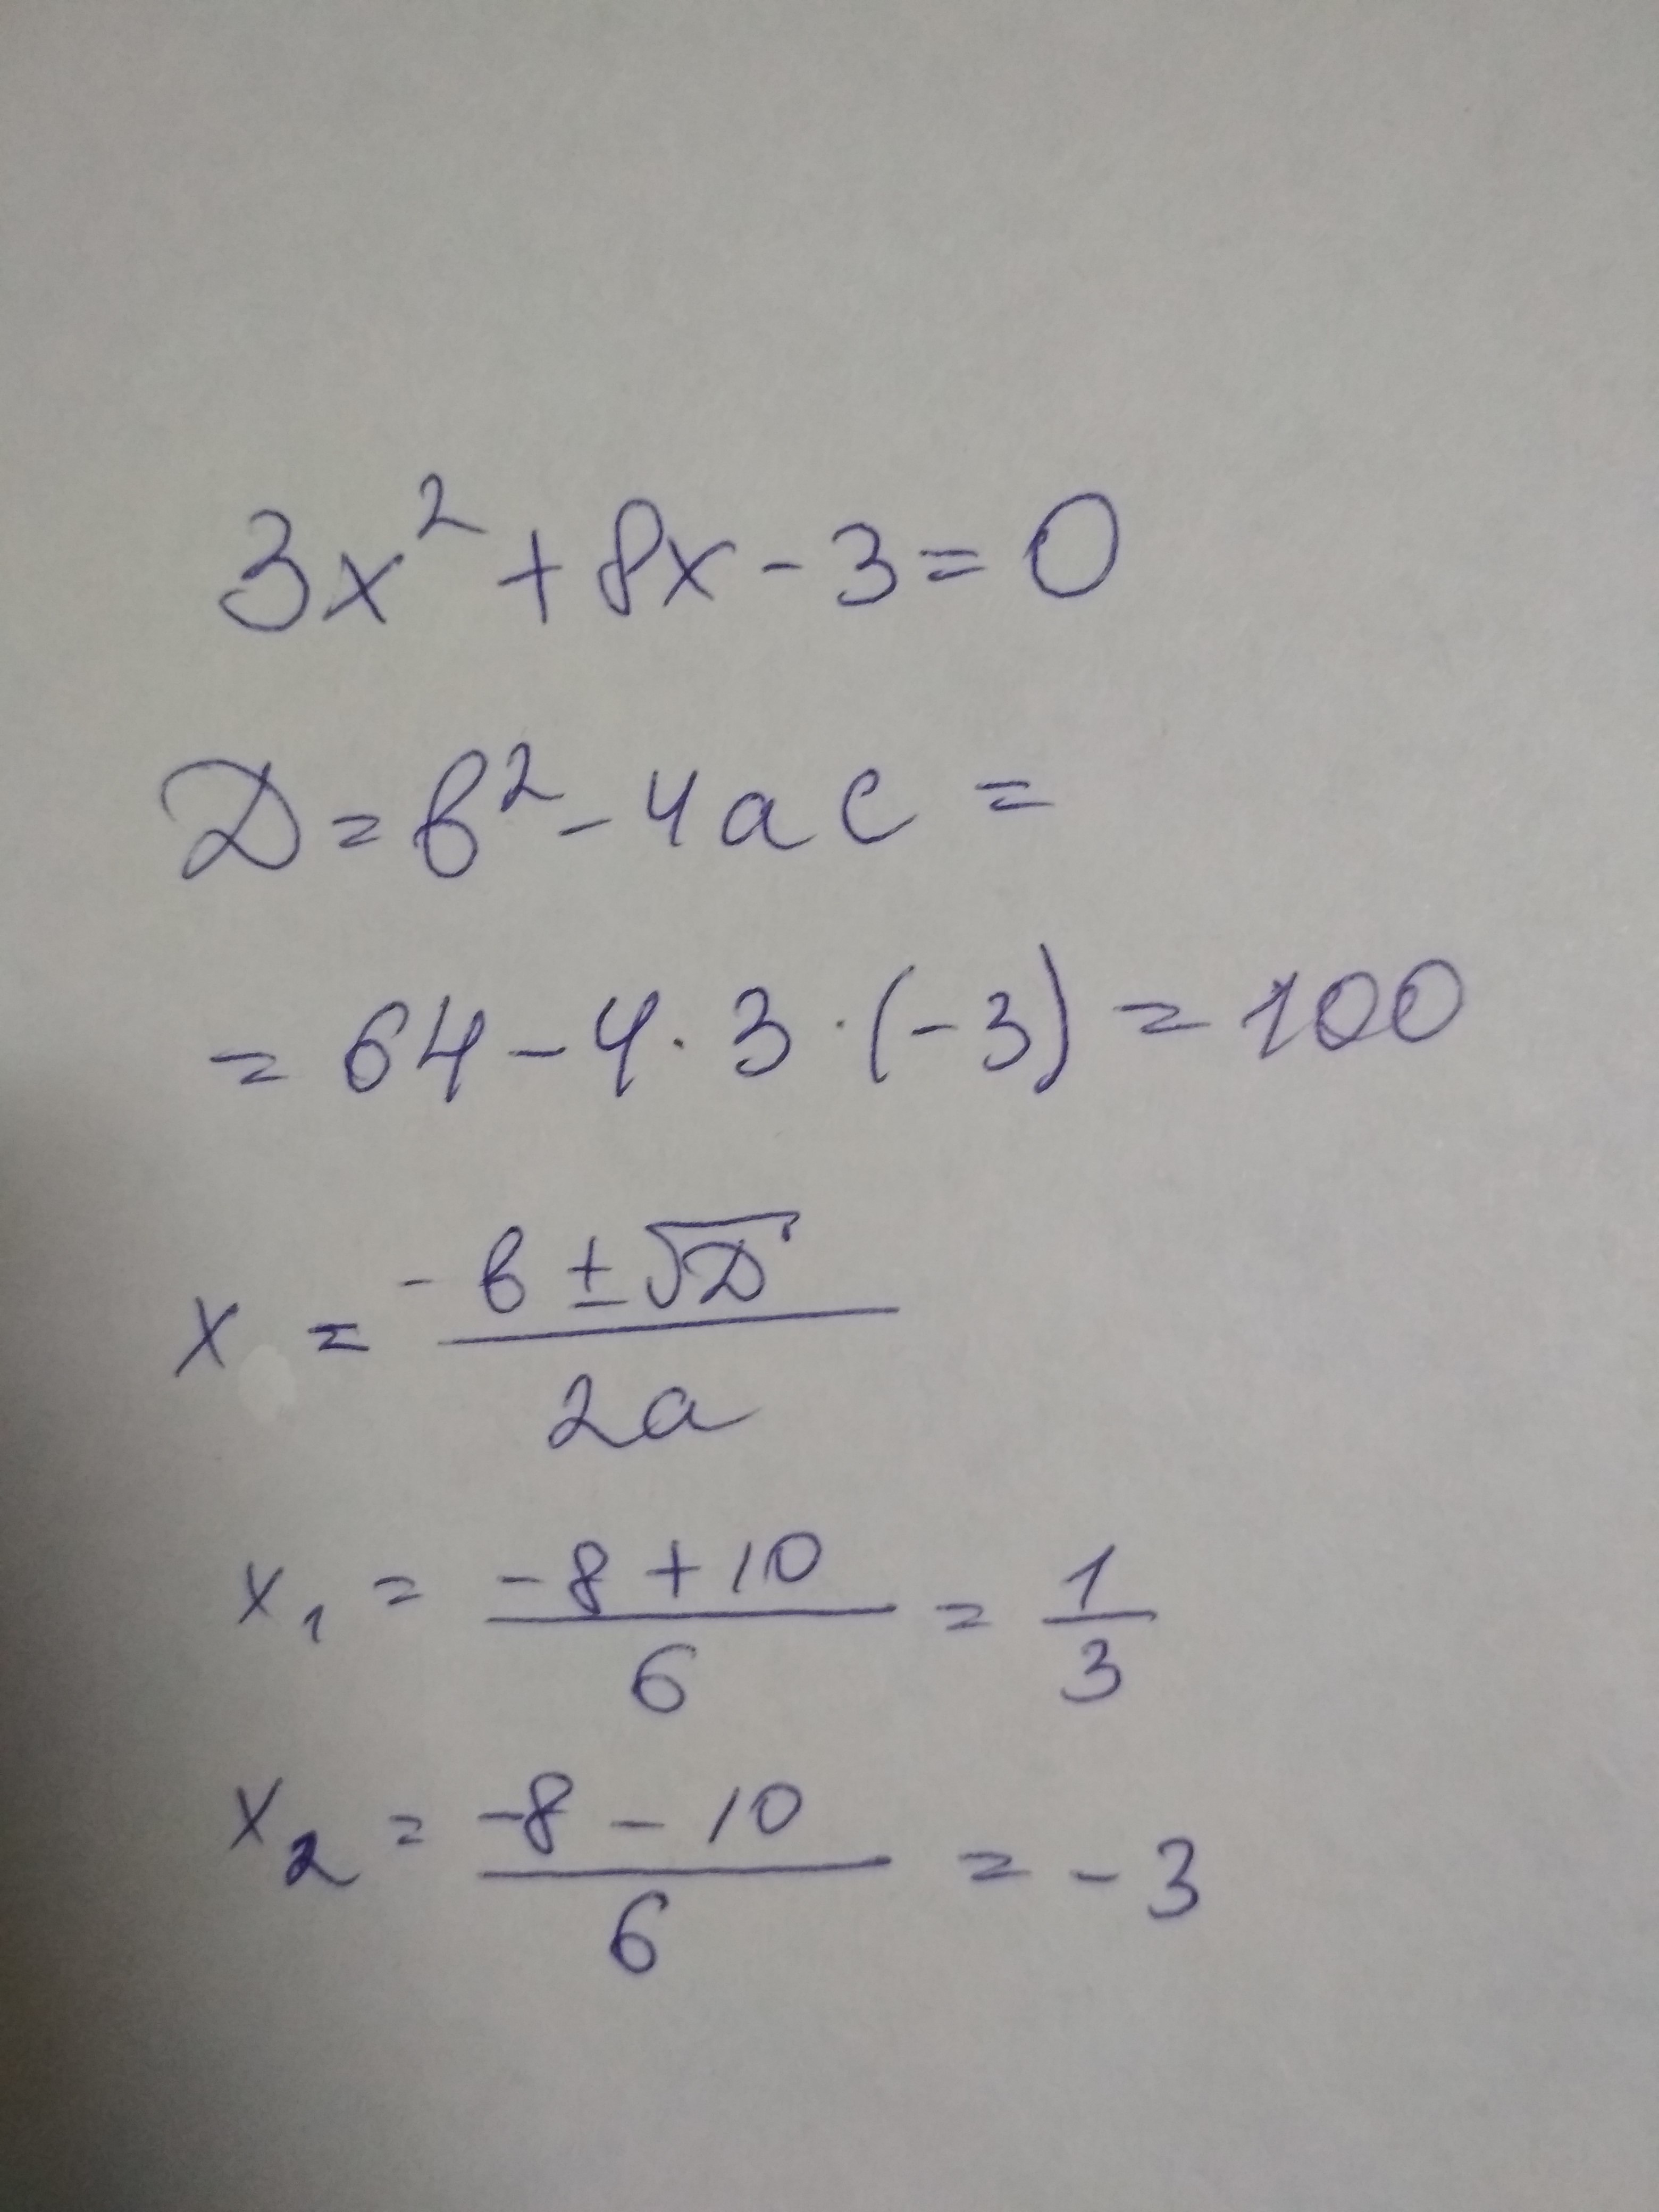 3x² + 8x - 3 = 0
D = b² - 4ac =
= 64 - 4 · 3 · (-3) = 100
x = (-b ± √D) / 2a
x₁ = (-8 + 10) / 6 = 1/3
x₂ = (-8 - 10) / 6 = -3